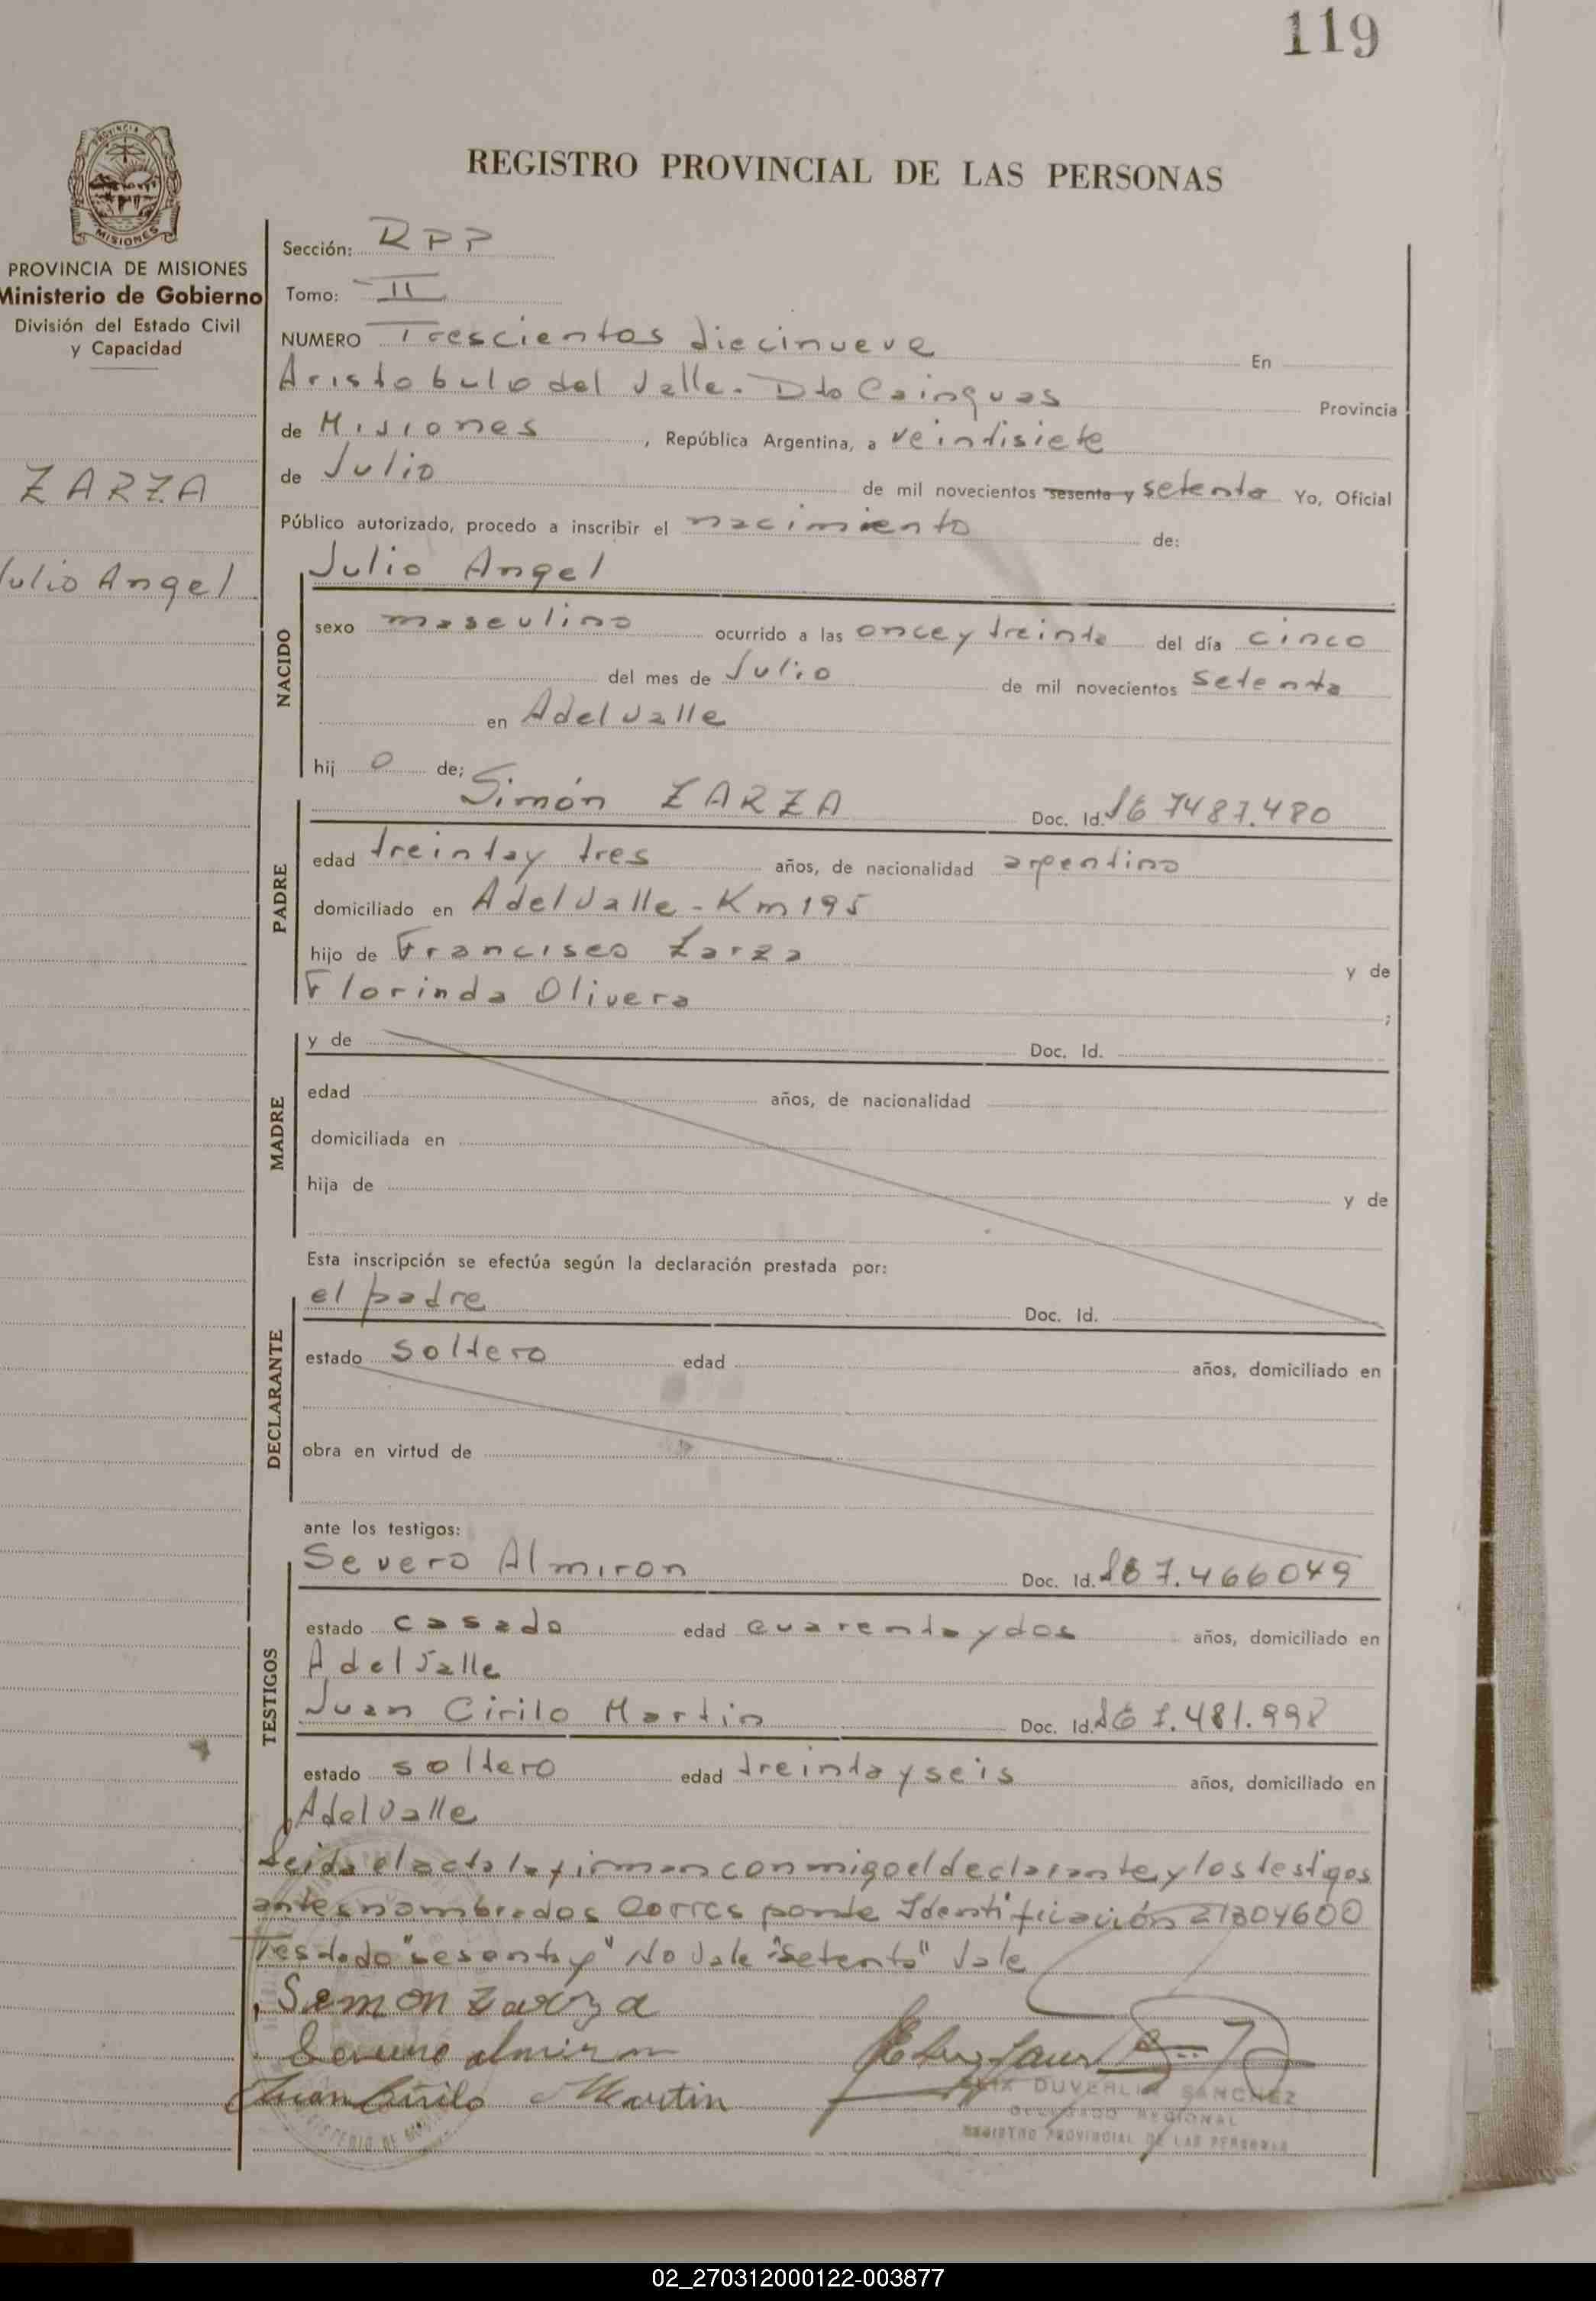 119
REGISTRO PROVINCIAL DE LAS PERSONAS
PROVINCIA DE MISIONES
Ministerio de Gobierno
División del Estado Civil
y Capacidad
ZARZA
Julio Angel
Sección: RPP
Tomo: II
NUMERO Trescientos diecinueve En
Aristobulo del Valle - Dto Cainguas Provincia
de Misiones, República Argentina, a veintisiete
de Julio de mil novecientos sesenta y setenta Yo, Oficial
Público autorizado, procedo a inscribir el nacimiento de:
NACIDO
Julio Angel
sexo masculino ocurrido a las once y treinta del día cinco
del mes de Julio de mil novecientos setenta
en A del Valle
hij o de;
PADRE
Simón ZARZA Doc. Id. 7487.480
edad treinta y tres años, de nacionalidad argentino
domiciliado en A del Valle - Km 195
hijo de Francisco Zarza y de
Florinda Olivera ;
MADRE
y de Doc. Id.
edad años, de nacionalidad
domiciliada en
hija de y de
Esta inscripción se efectúa según la declaración prestada por:
DECLARANTE
el padre Doc. Id.
estado soltero edad años, domiciliado en
obra en virtud de
ante los testigos:
TESTIGOS
Severo Almiron Doc. Id. 7.466049
estado casado edad cuarenta y dos años, domiciliado en
A del Valle
Juan Cirilo Martin Doc. Id. 7.481.998
estado soltero edad treinta y seis años, domiciliado en
A del Valle
Leida el acta la firman conmigo el declarante y los testigos
antes nombrados Corresponde Identificación 21304600
Testado "sesenta y" No Vale "Setenta" Vale
Semon Zarza
Severo Almiron
Juan Cirilo Martin
DUVERLIE SANCHEZ
DELEGADO REGIONAL
REGISTRO PROVINCIAL DE LAS PERSONAS
02_270312000122-003877